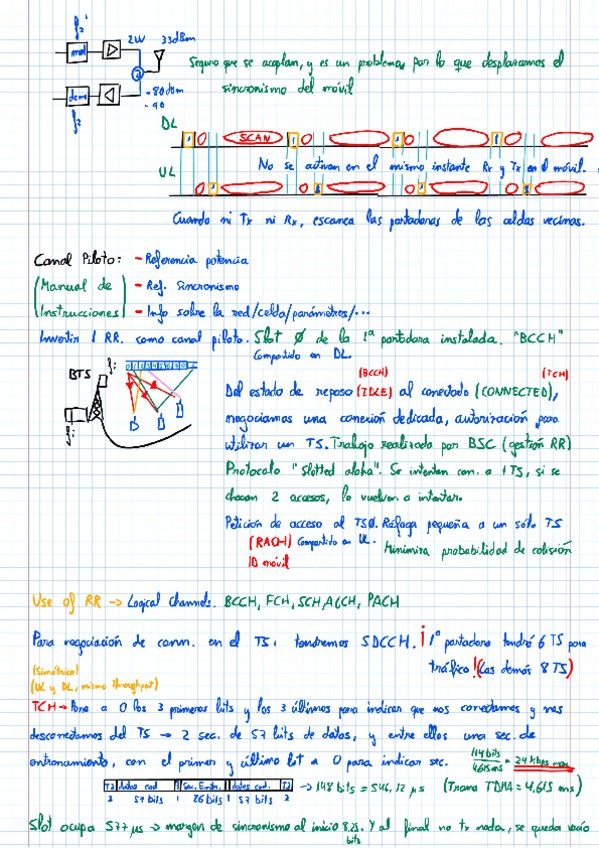 f2'
2W 33dBm
mod
Seguro que se acoplan, y es un problema, por lo que desplazamos el
sincronismo del móvil
dem
-80dBm
-90
f2
DL
1 SCAN 1 1 1
No se activan en el mismo instante Rx y Tx en el móvil.
UL
1 1 1 1
Cuando ni Tx ni Rx, escanea las portadoras de las celdas vecinas.
Canal Piloto: - Referencia potencia
(Manual de - Ref. Sincronismo
Instrucciones) - Info sobre la red/celda/parámetros/...
Invertir 1 RR. como canal piloto. Slot Ø de la 1ª portadora instalada. "BCCH"
Compartido en DL.
BTS
(BCCH) (TCH)
Del estado de reposo (IDLE) al conectado (CONNECTED),
negociamos una conexión dedicada, autorización para
utilizar un TS. Trabajo realizado por BSC (gestión RR)
Protocolo "Slotted aloha". Se intentan con. a 1 TS, si se
chocan 2 accesos, lo vuelven a intentar.
Petición de acceso al TSØ. Ráfaga pequeña a un sólo TS
(RACH) Compartido en UL. Minimiza probabilidad de colisión
ID móvil
Use of RR → Logical Channels. BCCH, FCH, SCH, AGCH, PACH
Para negociación de comn. en el TS1 tendremos SDCCH. ¡1ª portadora tendrá 6 TS para
tráfico! (Las demás 8 TS)
(Simétrico)
(UL y DL, mismo throughput)
TCH → Pone a 0 los 3 primeros bits y los 3 últimos para indicar que nos conectamos y nos
desconectamos del TS → 2 sec. de 57 bits de datos, y entre ellos una sec. de
entrenamiento, con el primer y último bit a 0 para indicar sec.
114 bits / 4.615 ms = 24 kbps max
T3 datos cod 1 Sec. Entr. 1 datos cod. T3
3 57 bits 1 26 bits 1 57 bits 3
→ 148 bits = 546,12 µs (Trama TDMA = 4,615 ms)
Slot ocupa 577 µs → margen de sincronismo al inicio 8.25. Y al final no tx nada, se queda vacío
bits